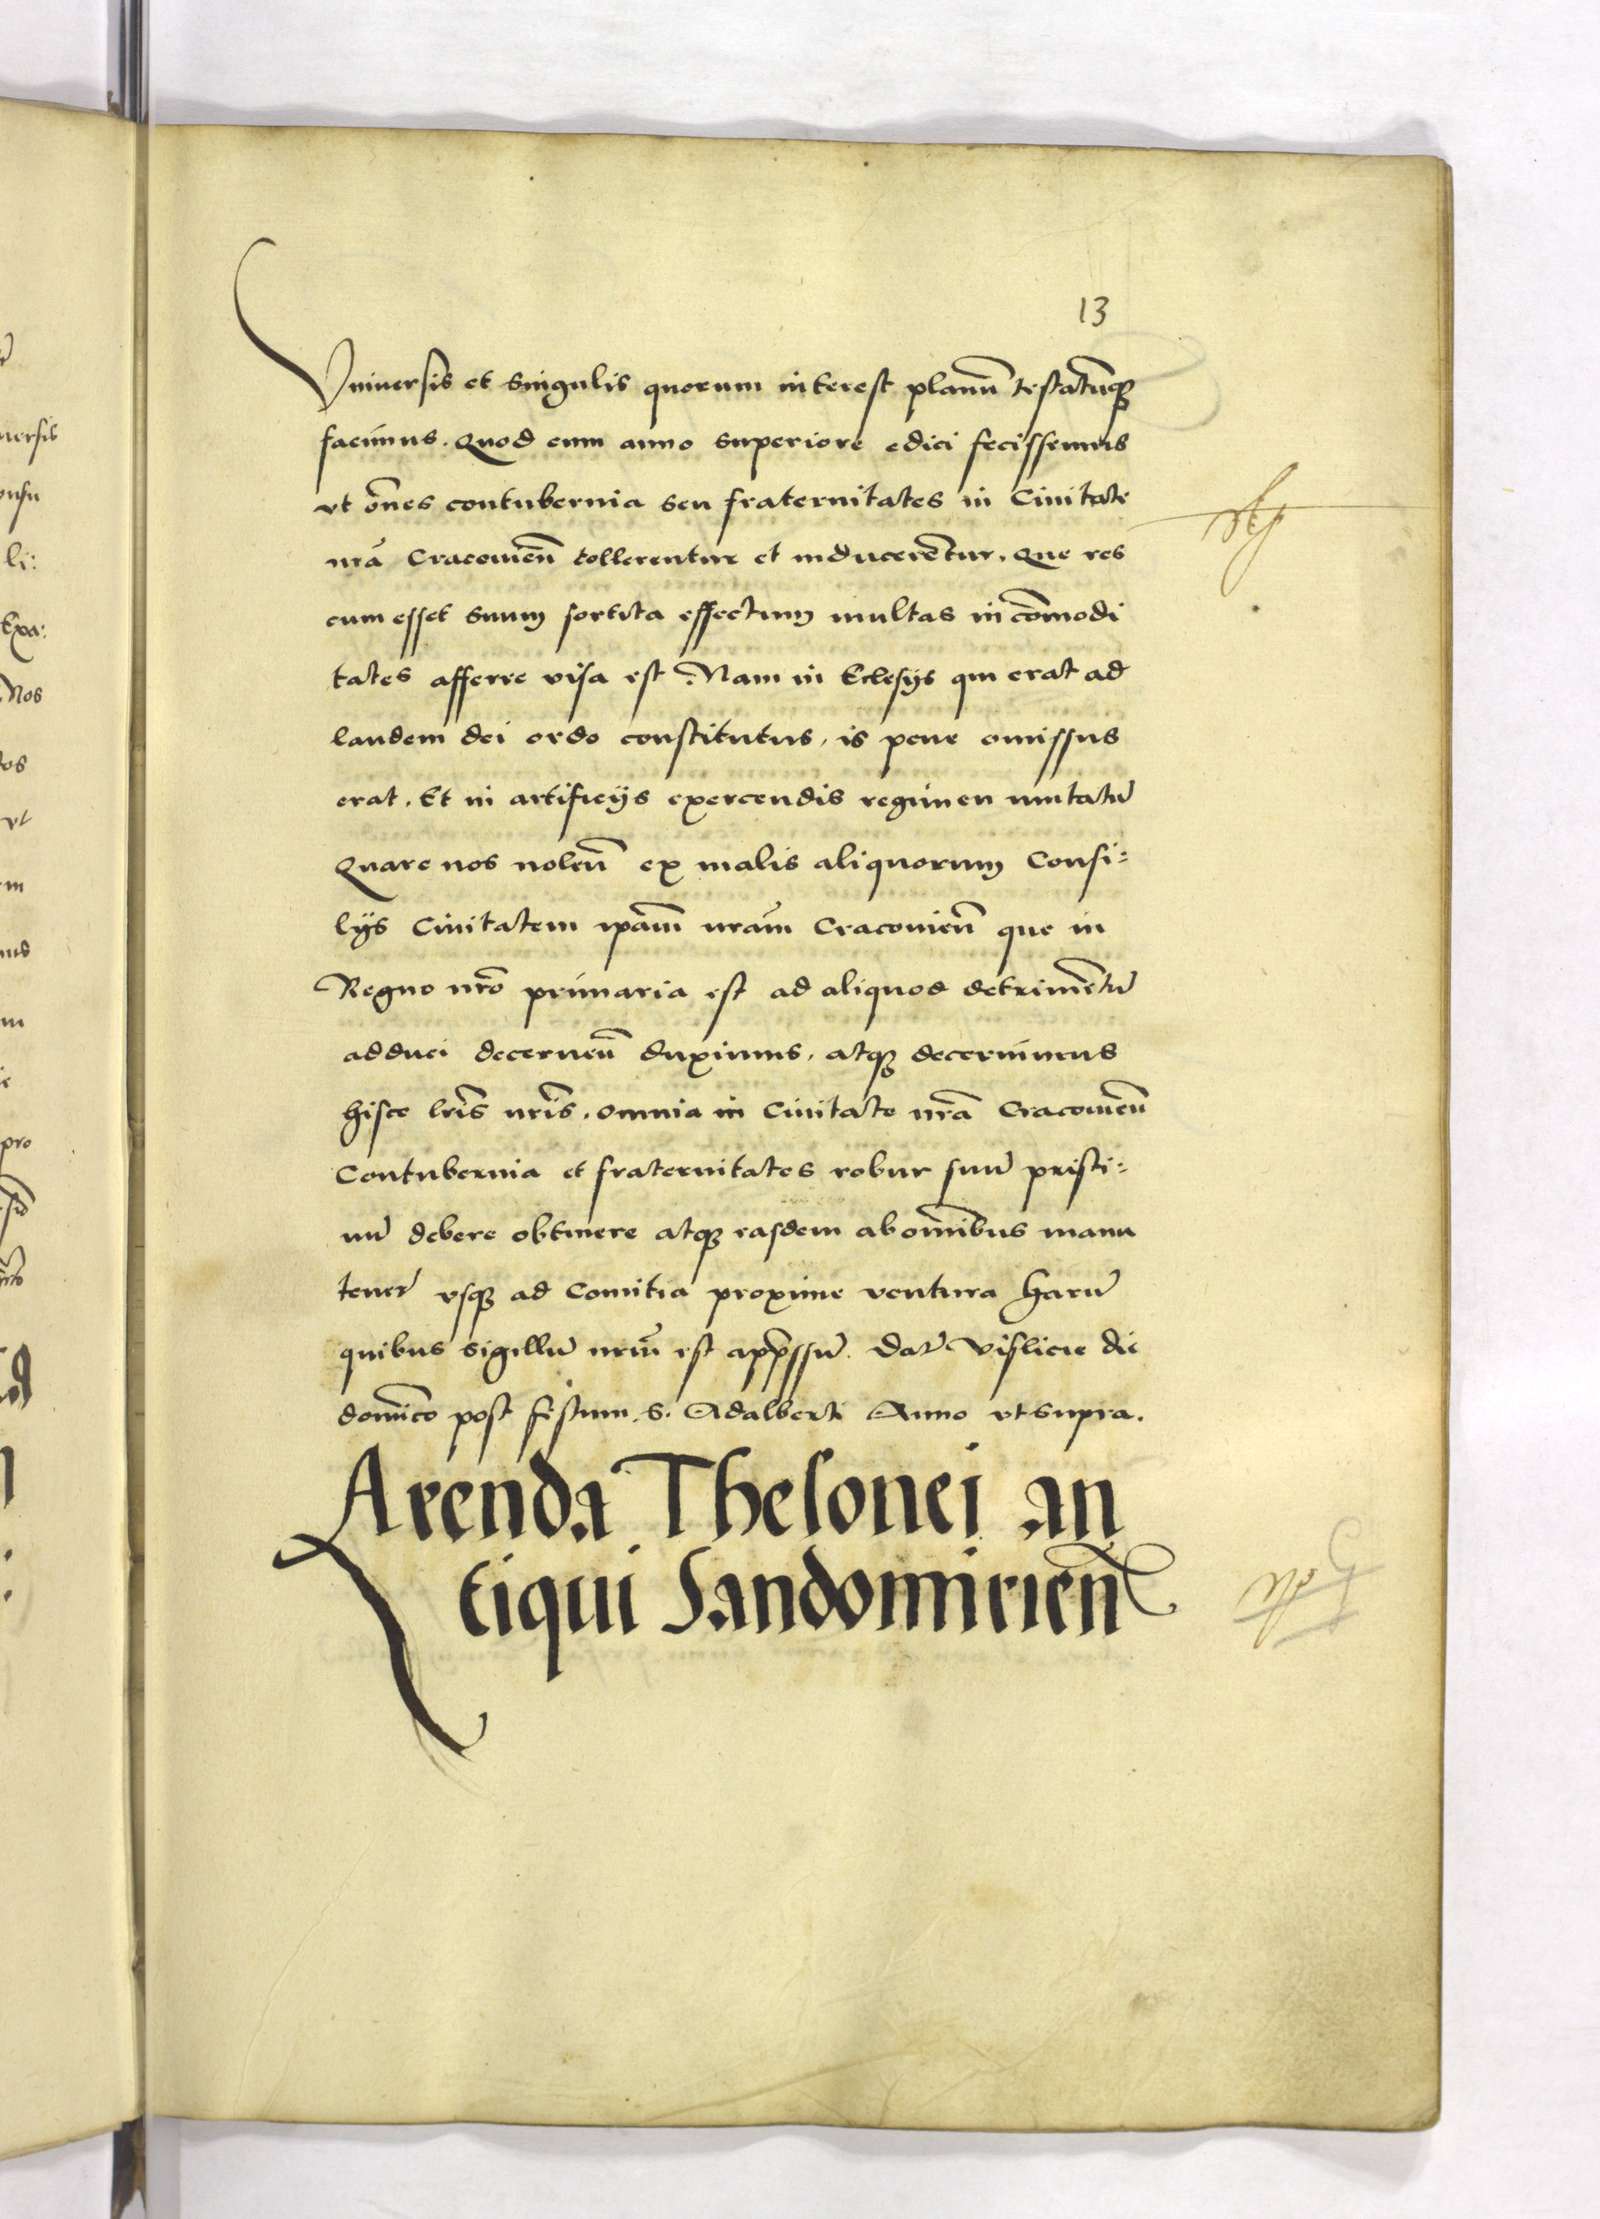 13
Vniuersis et singulis quorum interest planũ testatũqꝫ
facimus. Quod cum anno superiore edici fecissemus
vt õnes contubernia seu fraternitates in Ciuitate
nrã Cracouieñ tollerentur et inducerẽtur. Que res
cum esset suum sortita effectum multas incõmodi
tates afferre visa est. Nam in Eclesijs qui erat ad
laudem dei ordo constitutus, is pene omissus
erat. Et in artificijs exercendis regimen mutatũ
Quare nos noleñ ex malis aliquorum Consi-
lijs Ciuitatem ipãm nrãm Cracouieñ que in
Regno nrõ primaria est ad aliquod detrimẽtũ
adduci decerneñ duximus, atqꝫ decernimus
hisce lrĩs nrĩs. omnia in Ciuitate nrã Cracouieñ
Contubernia et fraternitates robur suũ pristi-
nũ debere obtinere atqꝫ easdem ab omĩbus manu
teneri vsqꝫ ad Comitia proxime ventura harũ
quibus sigillũ nrũ est app̃ssũ. Dat̃ Vislicie die
domĩco post festum. S. Adalberti Anno vt supra.
Arenda Thelonei an
tiqui Sandomirieñ